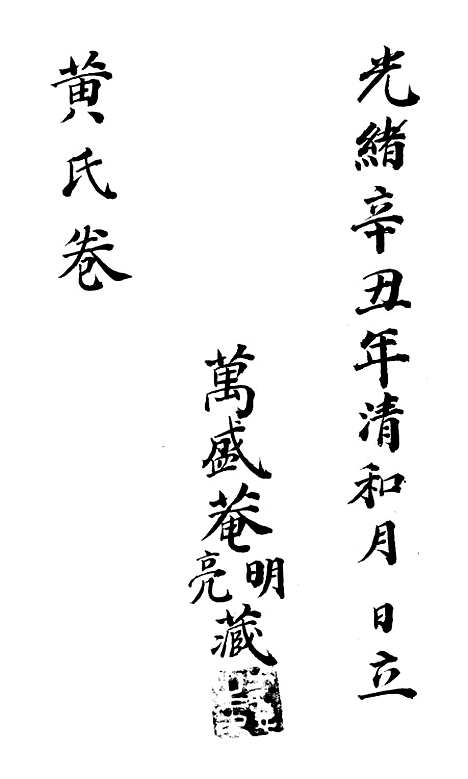 光緒辛丑年清和月 日立
萬盛菴明亮藏
黄氏卷